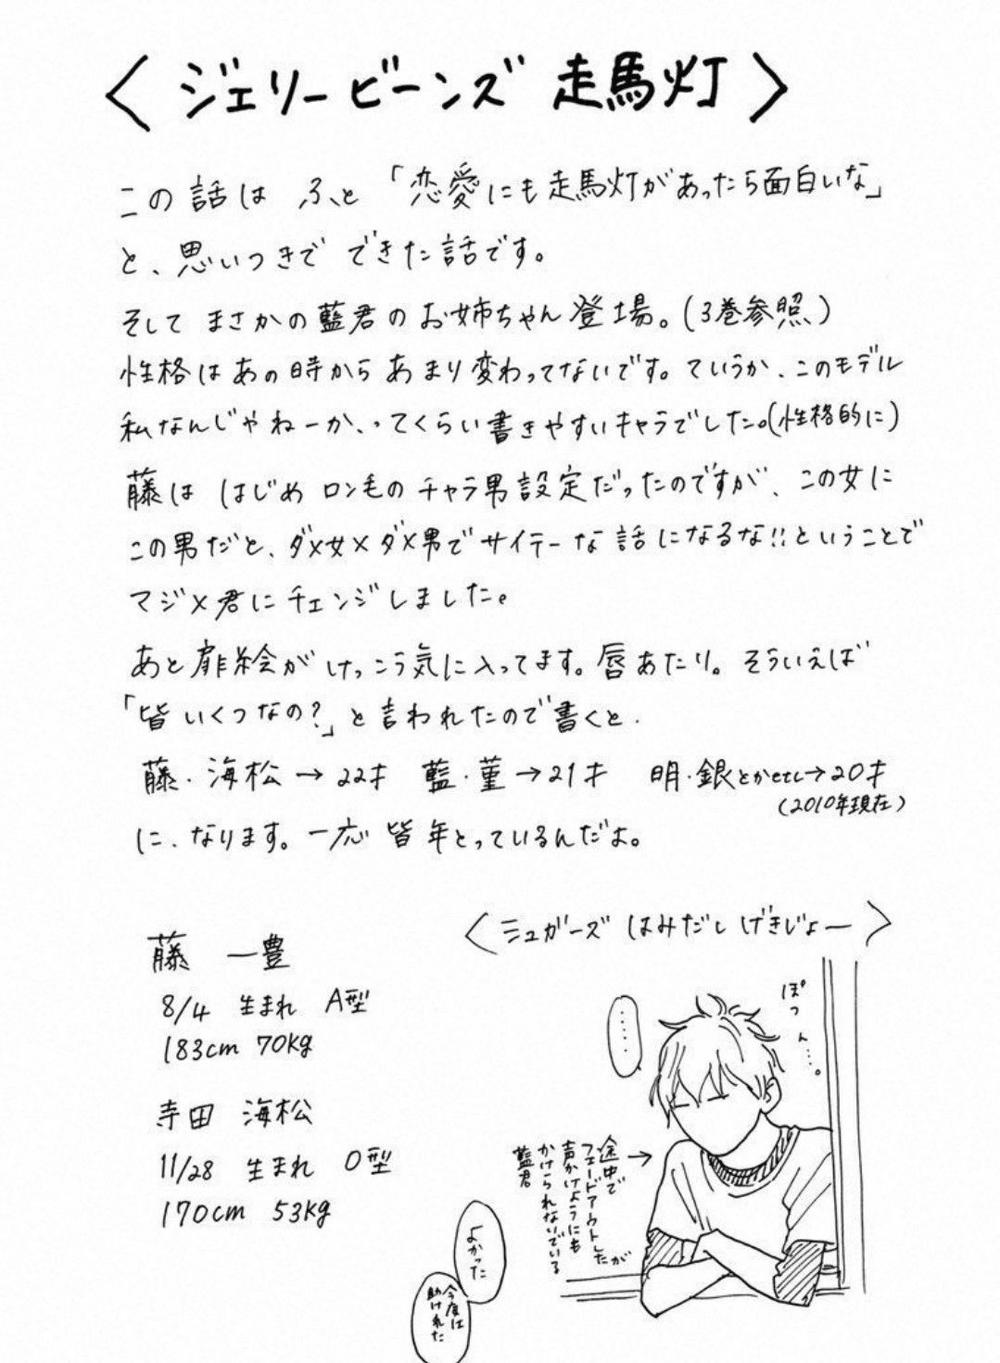 ＜ジェリービーンズ 走馬灯＞
この話は ふと「恋愛にも走馬灯があったら面白いな」
と、思いつきで できた話です。
そして まさかの藍君のお姉ちゃん登場。(3巻参照)
性格はあの時から あまり変わってないです。ていうか、このモデル
私なんじゃねーか、ってくらい書きやすいキャラでした。(性格的に)
藤は はじめ ロン毛の チャラ男設定だったのですが、この女に
この男だと、ダメ女×ダメ男で サイテーな話になるな!!ということで
マジメ君にチェンジしました。
あと扉絵が けっこう気に入ってます。唇あたり。そういえば
「皆いくつなの?」と言われたので書くと.
藤・海松→22才 藍・菫→21才 明・銀とかetc→20才
(2010年現在)
に、なります。一応 皆 年とっているんだよ。
藤 一豊
8/4 生まれ A型
183cm 70kg
寺田 海松
11/28 生まれ O型
170cm 53kg
＜シュガーズ はみだし げきじょー＞
ぽつん…。
……
途中で
フェードアウトしたが
声かけようにも
かけられないでいる
藍君
よかった
今度は
助けれた